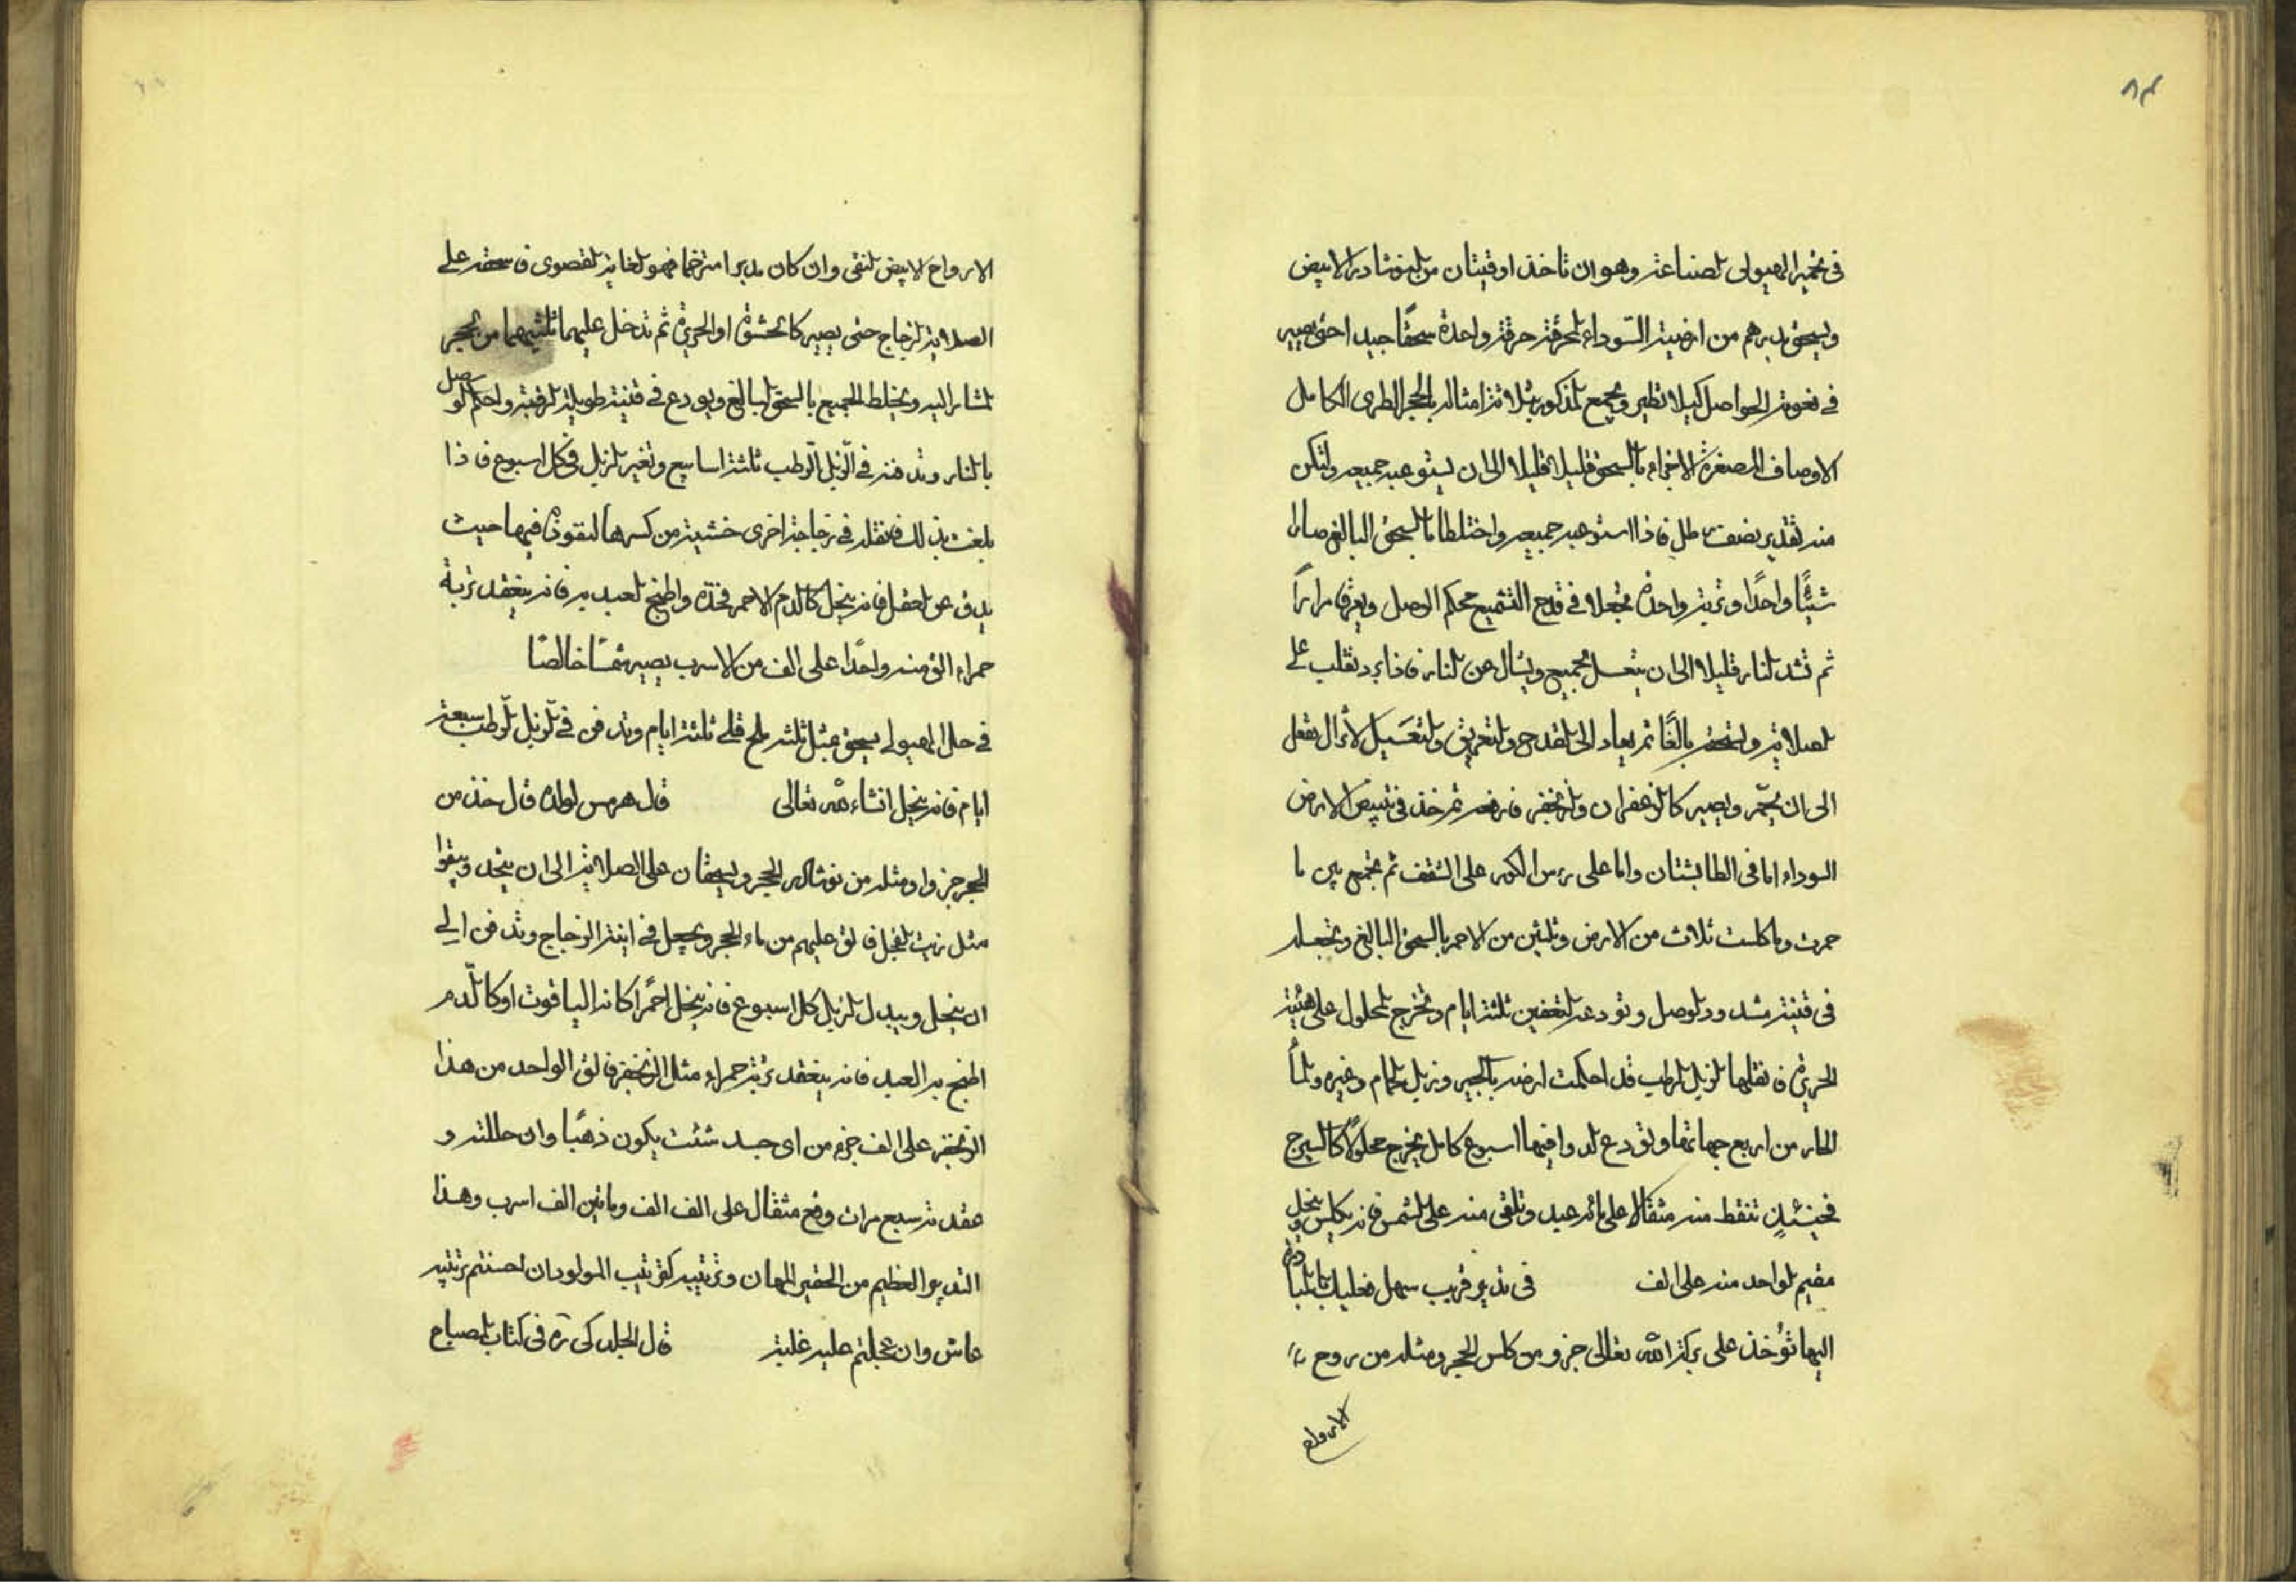 ٨٣
في تخمير الهيولى الصناعة وهو ان تاخذ اوقيتان من النوشادر الابيض
ويسحق بدرهم من ارضيته السّوداء المحرقة حرقة واحدة سحقًا جيدا حتى يصير
في نعومة الحواصل كيلا تطير ويجمع المذكور بثلاثة امثاله بالحجر الطرى الكامل
الاوصاف المصغرة الاجزاء بالسحق قليلا قليلا الى ان يستوعبه جميعه ولتكن
منه تقدير نصف رطل فاذا استوعبه جميعه واختلطا بالسحق البالغ صارا
شيئًا واحدًا وتربة واحدة تجعلا في قدح التشميع محكم الوصل ويعرق مرارًا
ثم تشد النار قليلا الى ان يتعسل الجميع ويشال عن النار فاذا برد تقلب على
الصلاية ويسحق بالغًا ثم يعاد الى القدح والتعريق والتعسيل لا تزال تفعل
الى ان يحمّر ويصير كالزعفران والزنجفر فارفعه ثم خذ في تبييض الارض
السوداء اما في الطابشتان واما على راس الكور على الشقف ثم تجمع بين ما
حمرت وما كلست ثلاث من الارض وثلثين من الاحمر بالسحق البالغ وتجعله
في قنينة مشدود الوصل وتودعه التعفين ثلثة ايام وتخرج المحلول على هيئة
الحريرة فانقلها لزبل الرطب قد احكمت ارضه بالجير وزبل الحمام وغيره وبالماء
الحار من اربع جهاتها وتودع الدوا فيها اسبوع كامل يخرج محلولًا كالسيرج
فحينئذٍ تنقط منه مثقالا على مائة عبد وتلقى منه على الشمس فانه يكلس وينحل
مقيم الواحد منه على الف في تدبير قريب سهل فعليك بالمبادرة
اليها تؤخذ على بركة الله تعالى جزو من كلس الحجر ومثله من روح
الارواح
الارواح الابيض النقى وان كان مدبرا متزخما فهو الغاية القصوى فاسحقه على
الصلاية الزجاج حتى يصير كالحشوة او الحريرة ثم تدخل عليهما ثلثيهما من الحجر
المشار اليه ويخلط الجميع بالسحق البالغ ويودع في قنينة طويلة الرقبة واحكم الوصل
بالنار وتدفنه في الزّبل الرّطب ثلثة اسابيع وتغير الزبل في كل اسبوع فاذا
بلغت بذلك فانقله في زجاجة اخرى خشية من كسرها لنفوذه فيها حيث
يدق عن العقل فانه ينحل كالدم الاحمر فخذه واطبخ العبد به فانه ينعقد تربة
حمراء الق منه واحدًا على الف من الاسرب يصير شمسًا خالصًا
في حل الهيولى يسحق بمثل ثلثه ملح قلى ثلثة ايام وتدفن في الزّبل الرّطب سبعة
ايام فانه ينحل انشاء الله تعالى قال هرمس لولده قال خذ من
الحجر جزوا ومثله من نوشادر الحجر ويسحقان على الصلاية الى ان يتحد ويبقوا
مثل زيت الفجل فالق عليهم من ماء الحجر ويجعل في انية الزجاج وتدفن الى
ان ينحل ويبدل الزبل كل اسبوع فانه ينحل احمرًا كانه الياقوت او كالدّم
اطبخ به العبد فانه ينعقد تربة حمراء مثل الزنجفر فالق الواحد من هذا
الزنجفر على الف جزء من اى جسد شئت يكون ذهبًا وان حللته و
عقدته سبع مرات وقع مثقال على الف الف ومائتين الف اسرب وهذا
التدبير العظيم من الحقير المهان وتربيته كتربيت المولود ان احسنتم تربيته
عاش وان عجلتم عليه غليته قال الجلدكى ره في كتاب المصباح